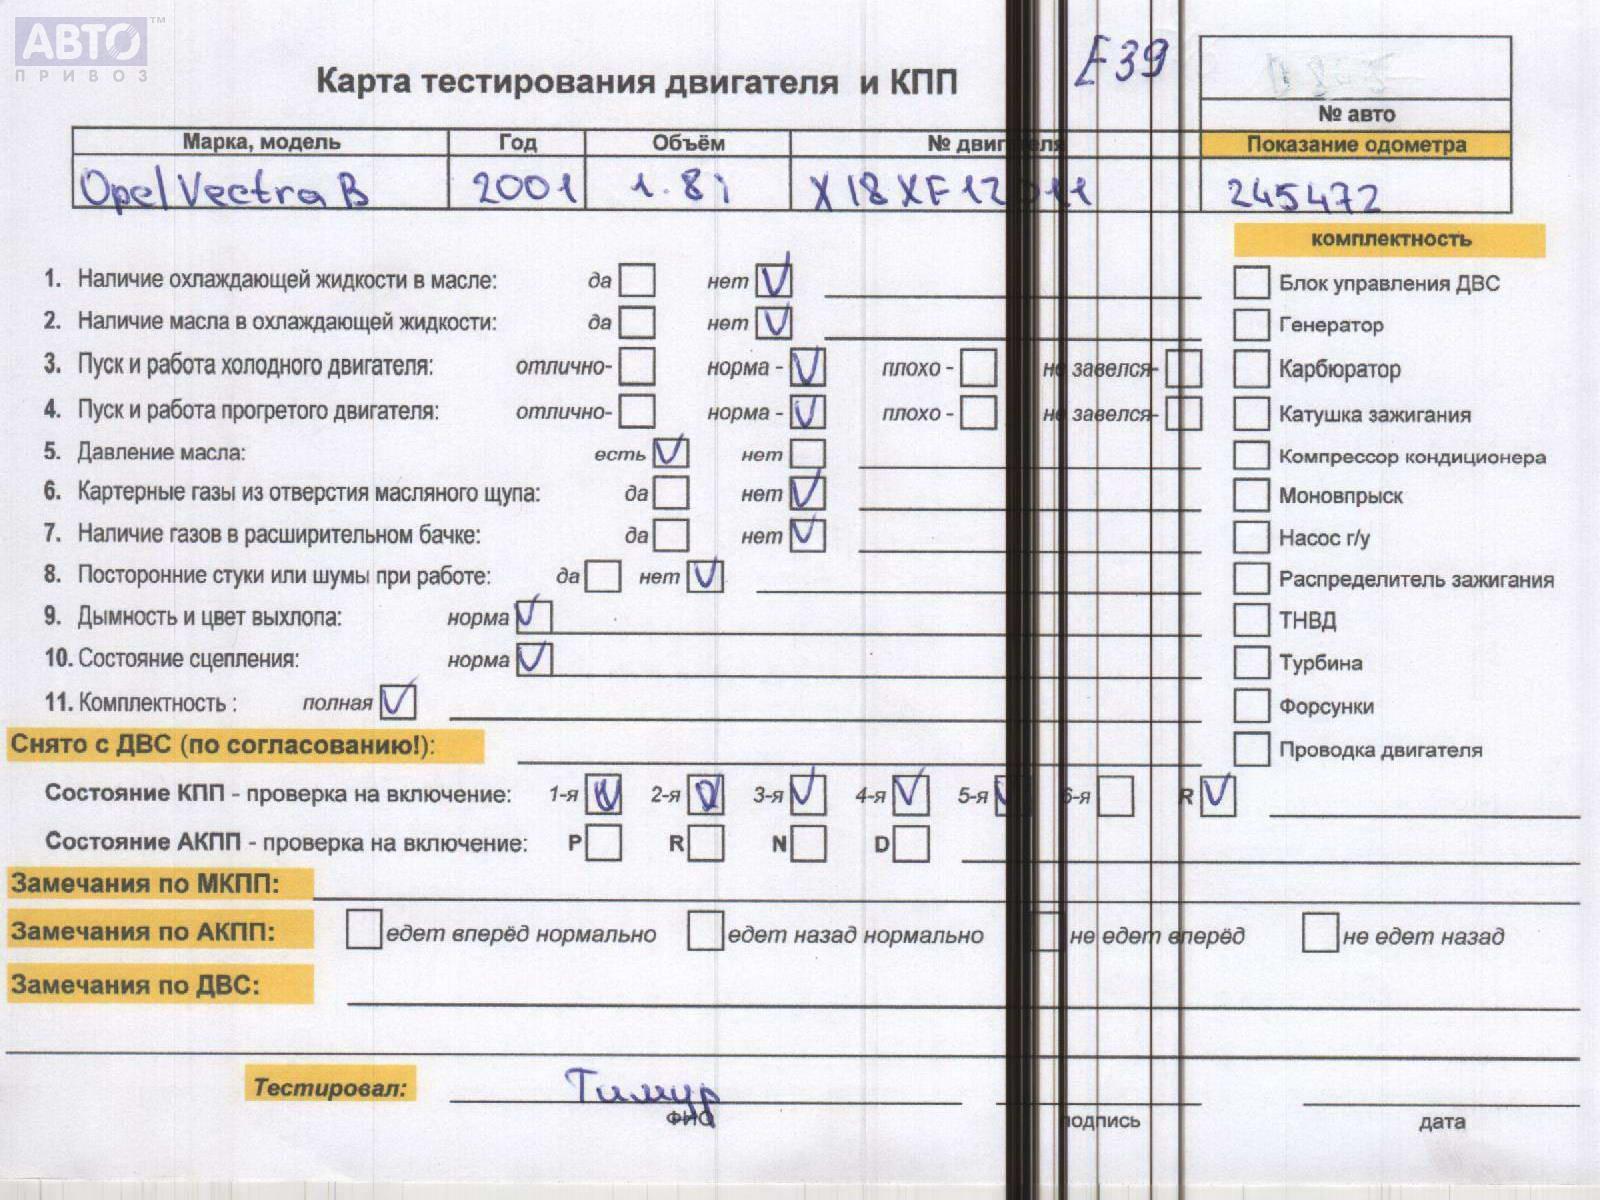 АВТО ™
ПРИВОЗ
E39
Карта тестирования двигателя и КПП
№ авто
Марка, модель Год Объём № двигателя Показание одометра
Opel Vectra B 2001 1.8i 245472
комплектность
1. Наличие охлаждающей жидкости в масле: да нет V
Блок управления ДВС
2. Наличие масла в охлаждающей жидкости: да нет V
Генератор
3. Пуск и работа холодного двигателя: отлично- норма - V плохо - не завелся-
Карбюратор
4. Пуск и работа прогретого двигателя: отлично- норма - V плохо - не завелся-
Катушка зажигания
5. Давление масла: есть V нет
Компрессор кондиционера
6. Картерные газы из отверстия масляного щупа: да нет V
Моновпрыск
7. Наличие газов в расширительном бачке: да нет V
Насос г/у
8. Посторонние стуки или шумы при работе: да нет V
Распределитель зажигания
9. Дымность и цвет выхлопа: норма V
ТНВД
10. Состояние сцепления: норма V
Турбина
11. Комплектность : полная V
Форсунки
Снято с ДВС (по согласованию!):
Проводка двигателя
Состояние КПП - проверка на включение: 1-я V 2-я V 3-я V 4-я V 5-я V 6-я R V
Состояние АКПП - проверка на включение: P R N D
Замечания по МКПП:
Замечания по АКПП: едет вперёд нормально едет назад нормально не едет вперёд не едет назад
Замечания по ДВС:
Тестировал: Тимур
ФИО подпись дата